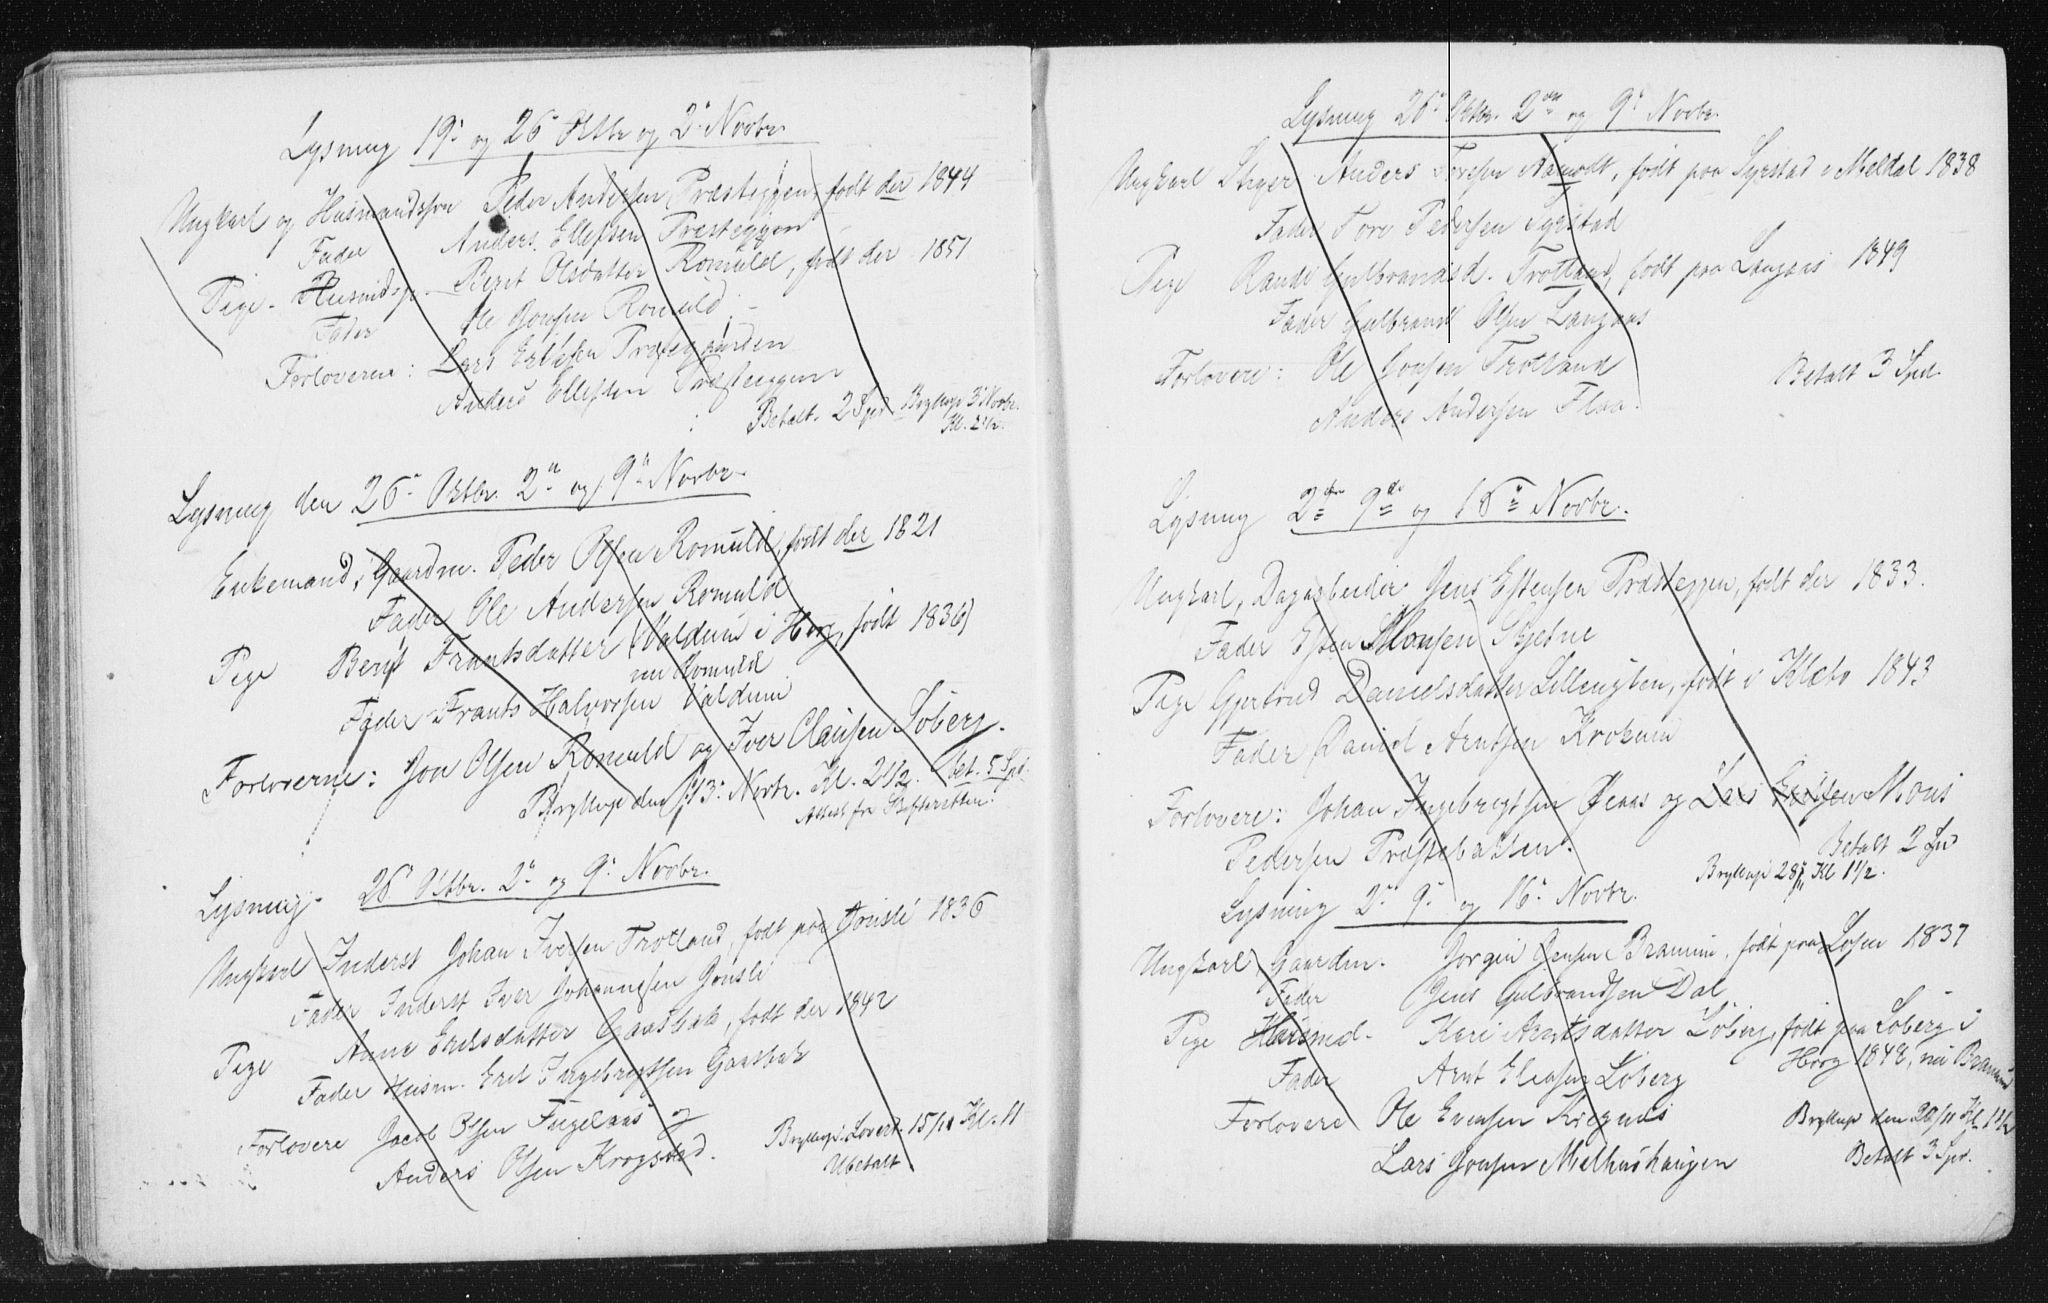 Lysning 19de og 26 Oktbr og 2de Novbr.
Ungkarl og Husmandssøn Peder Andersen Præsteggen, født der 1844
Fader Anders Ellefsen Præsteggen
Pige - Husmdsp. Berit Olsdatter Romuld, født der 1851
Fader Ole Jonsen Romuld
Forloverne: Lars Præstegaarden
Anders Ellefsen Præsteggen
Betalt. 2 Spd Bryllup 3 Novbr.
Kl. 2½.
Lysning den 26de Oktbr. 2n og 9n Novbr.
Enkemand, Gaardm. Peder Olsen Romuld, født der 1821
Fader Ole Andersen Romuld
Pige Berit Frantsdatter (Valdum i Horg, født 1836)
nu Romuld
Fader Frants Halvorsen Valdum
Forloverne: Jon Olsen Romuld og Iver Clausen Løberg.
Bryllup den 13de Novbr. Kl. 2½. bet. 5 Spd.
Attest fra Skifteretten.
Lysning 26n Oktbr. 2n og 9n Novbr.
Ungkarl Inderst Johan Iversen Trotland, født paa Gonsli 1836
Fader Inderst Iver Johannesen Gonsli
Pige Anne Eriksdatter Gaasbak, født der 1842
Fader Husm. Erik Ingebregtsen Gaasbak
Forlovere Jacob Olsen Fuglaas og
Anders Olsen Krogstad.
Bryllup Løverd. 15/11 Kl. 11
Ubetalt
Lysning 26de Oktbr. 2den og 9de Novbr.
Ungkarl Anders Toresen Aamodt, født paa Syrstad i Meldal 1838
Fader Tore Pedersen Syrstad
Pige Randi Gulbrandsd. Trotland, født paa Langaas 1849
Fader Gulbrand Olsen Langaas
Forlovere: Ole Jonsen Trotland
Anders Andersen Flaa.
Betalt 3 Spd.
Lysning 2den 9de og 16de Novbr.
Ungkarl, Dagarbeider Jens Estensen Præsteggen, født der 1833.
Fader Esten Monsen Skjetne
Pige Gjertrud Danielsdatter Lilleugten, født i Klæbo 1843
Fader Daniel Arntsen Krokum
Forlovere: Johan Ingebregtsen Øraas og Lars Eriksen Mons
Pedersen Præstebakken.
Betalt 2 Spd
Bryllup 28/11 Kl 1½.
Lysning 2n 9n og 16n Novbr.
Ungkarl, Gaardm. Jørgen Jensen Bramun, født paa Losen 1837
Fader Jens Gulbrandsen Dal
Pige Husmd. Kari Arntsdatter Løberg, født paa Løberg i
Horg 1848, nu Bramun
Fader Arnt Løberg
Forlovere Ole Evensen Kregnes
Bryllup den 20/11 Kl 1½
Lars Jonsen Melhushaugen
Betalt 3 Spd.